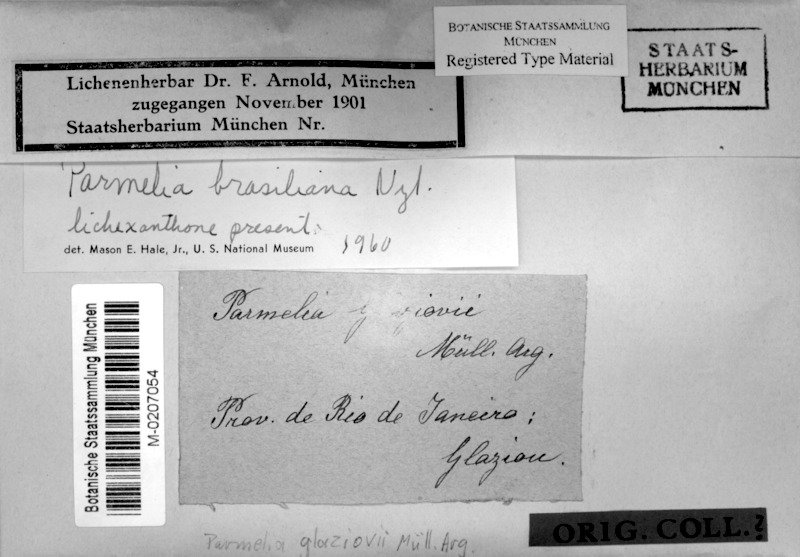 BOTANISCHE STAATSSAMMLUNG
MÜNCHEN
Registered Type Material
STAATS-
HERBARIUM
MÜNCHEN
Lichenenherbar Dr. F. Arnold, München
zugegangen November 1901
Staatsherbarium München Nr.
Parmelia brasiliana Nyl.
lichexanthone present.
det. Mason E. Hale, Jr., U. S. National Museum 1960
Botanische Staatssammlung München
M-0207054
Parmelia
Müll. Arg.
Prov. de Rio de Janeiro;
Glaziou.
ORIG. COLL.?
Parmelia glaziovii Müll. Arg.